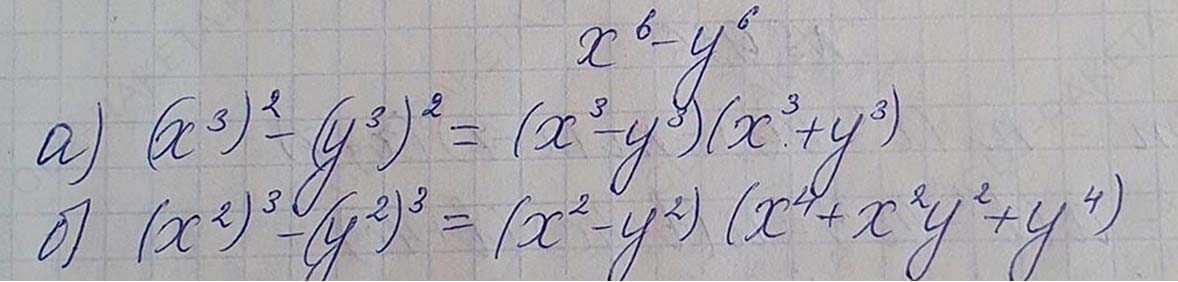 x⁶ - y⁶
а) (x³)² - (y³)² = (x³ - y³)(x³ + y³)
б) (x²)³ - (y²)³ = (x² - y²) (x⁴ + x²y² + y⁴)